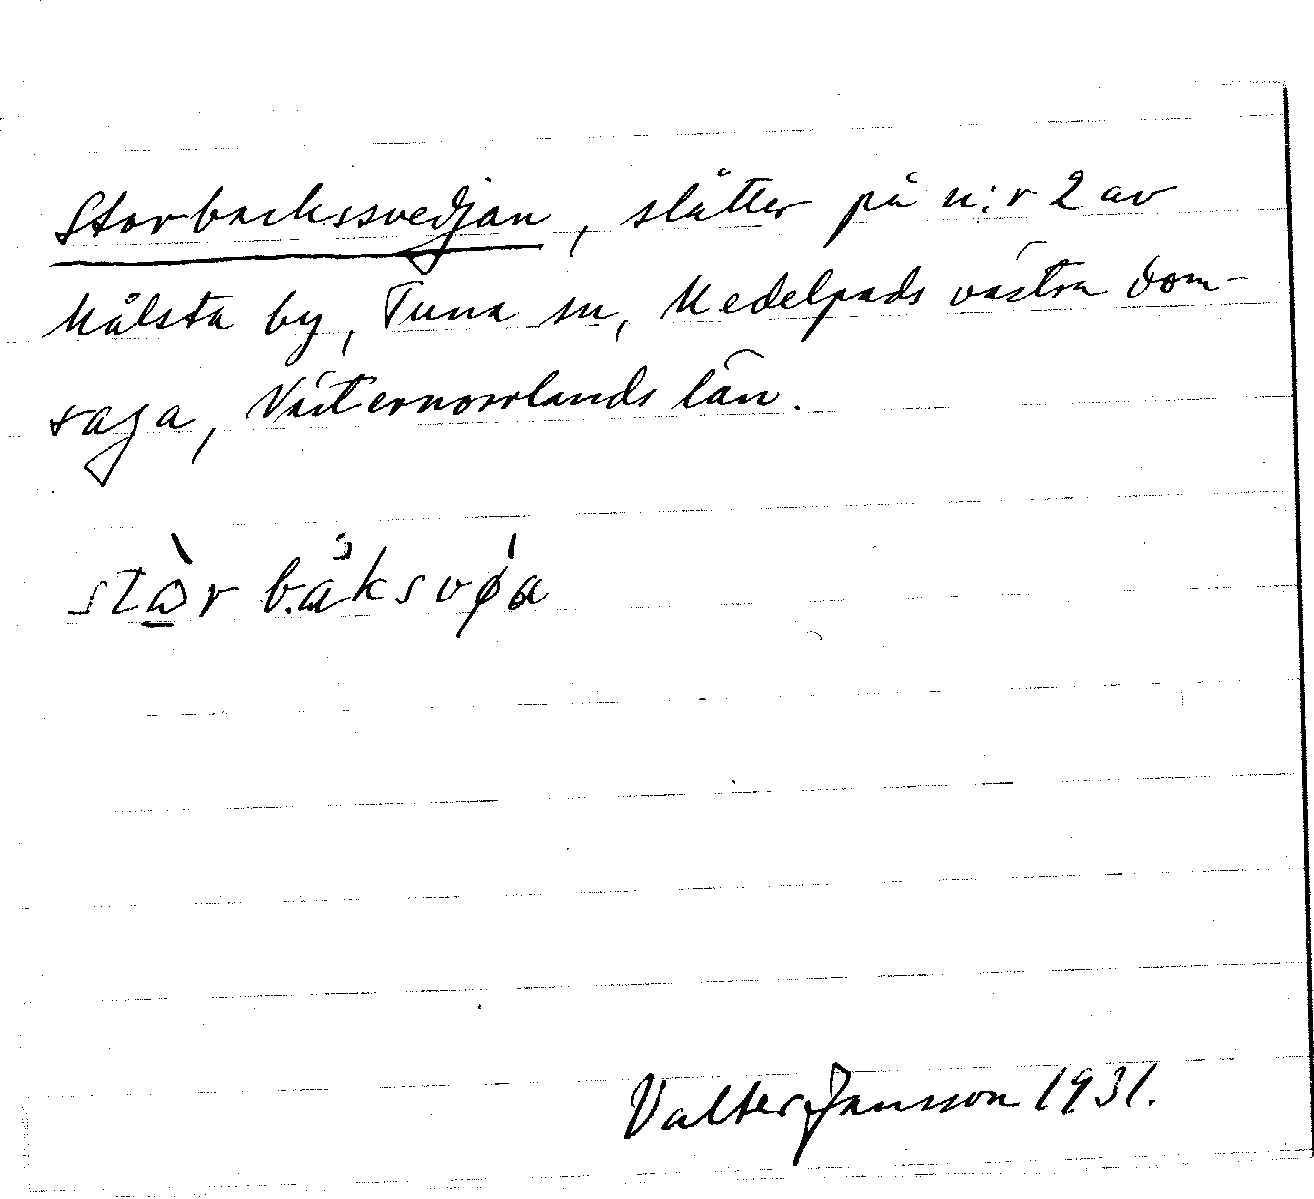 Storbackssvedjan, slåtter på n:r 2 av
Målsta by, Tuna sn, Medelpads västra dom-
saga, Västernorrlands län.
Valter Jansson 1931.